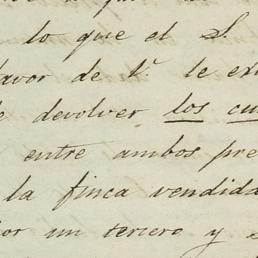 lo que el S.
favor de V.
devolver los
entre ambos
la finca vendida
por un tercero y